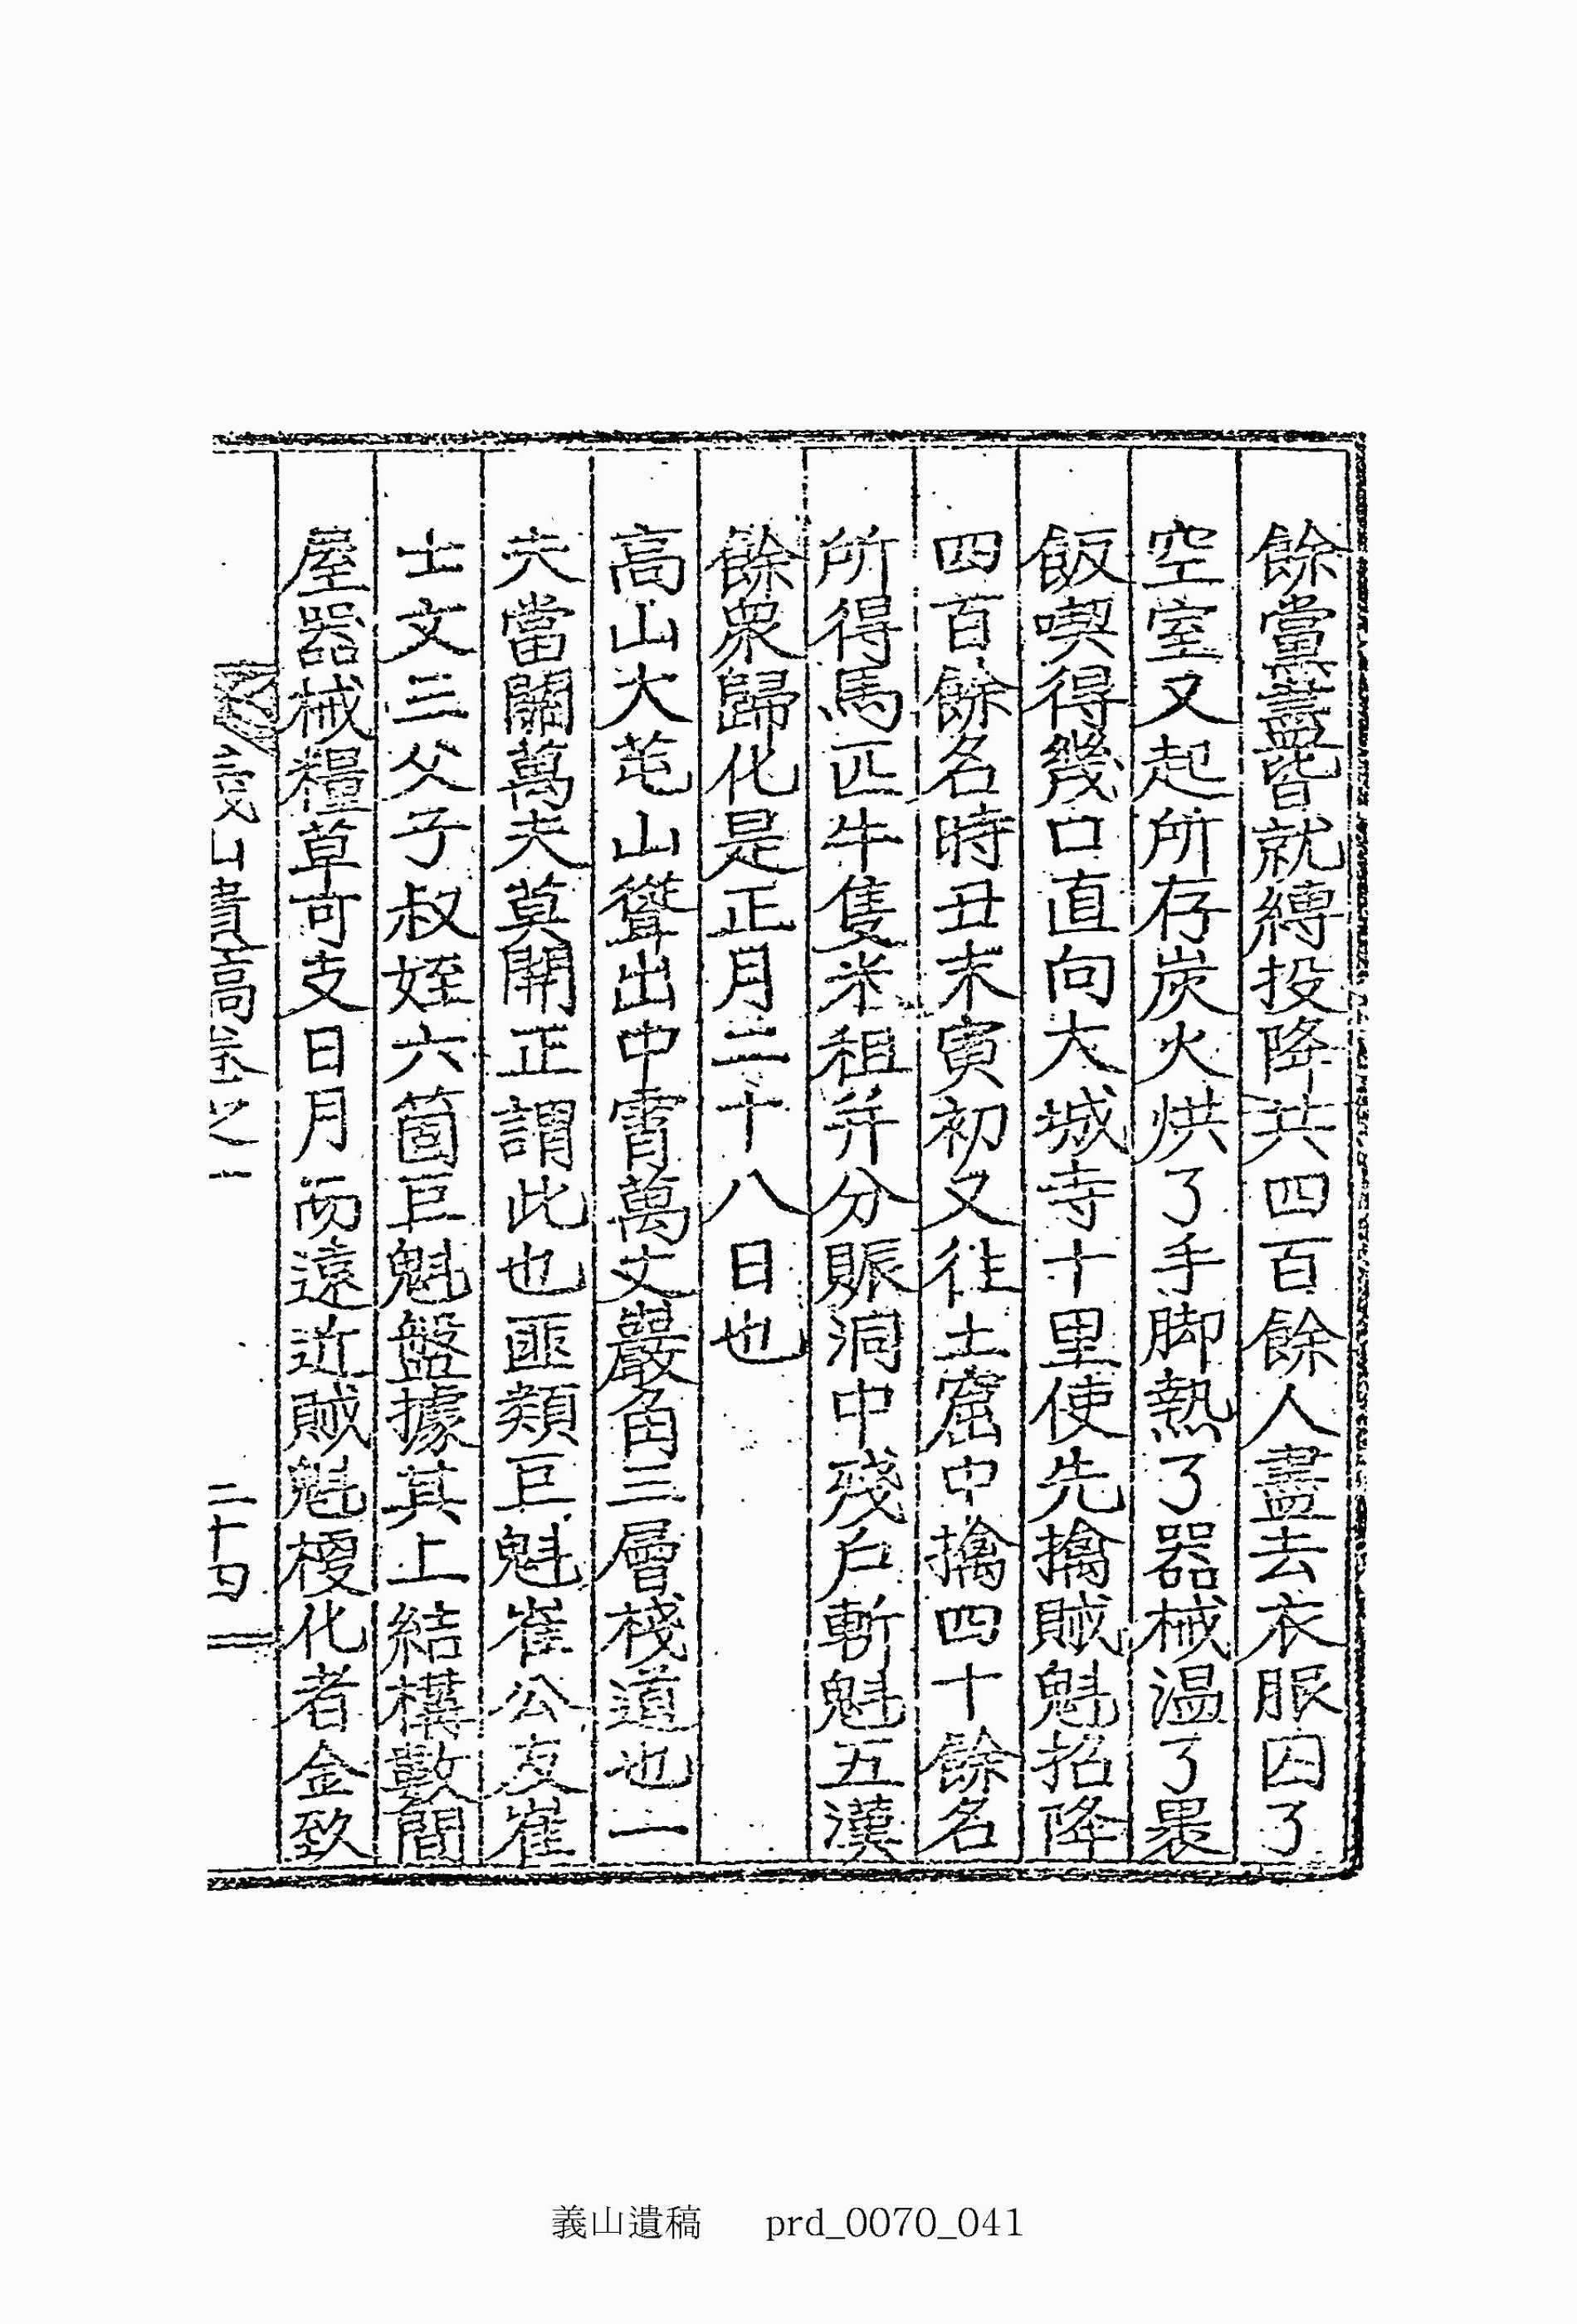 餘黨盡皆就縛投降共四百餘人盡去衣服囚了
空室又起所存炭火烘了手脚熱了器械温了裹
飯喫得幾口直向大城寺十里使先擒賊魁招降
四百餘名時丑末寅初又往土窟中擒四十餘名
所得馬匹牛隻米租并分賑洞中殘戶斬魁五漢
餘衆歸化是正月二十八日也
高山大芚山聳出中霄萬丈巖角三層棧道也一
夫當關萬夫莫開正謂此也匪類巨魁崔公友崔
士文三父子叔姪六箇巨魁盤據其上結構數間
屋器械糧草可支日月而遠近賊魁梗化者金致
義山遺稿卷之二 二十四
義山遺稿 prd_0070_041